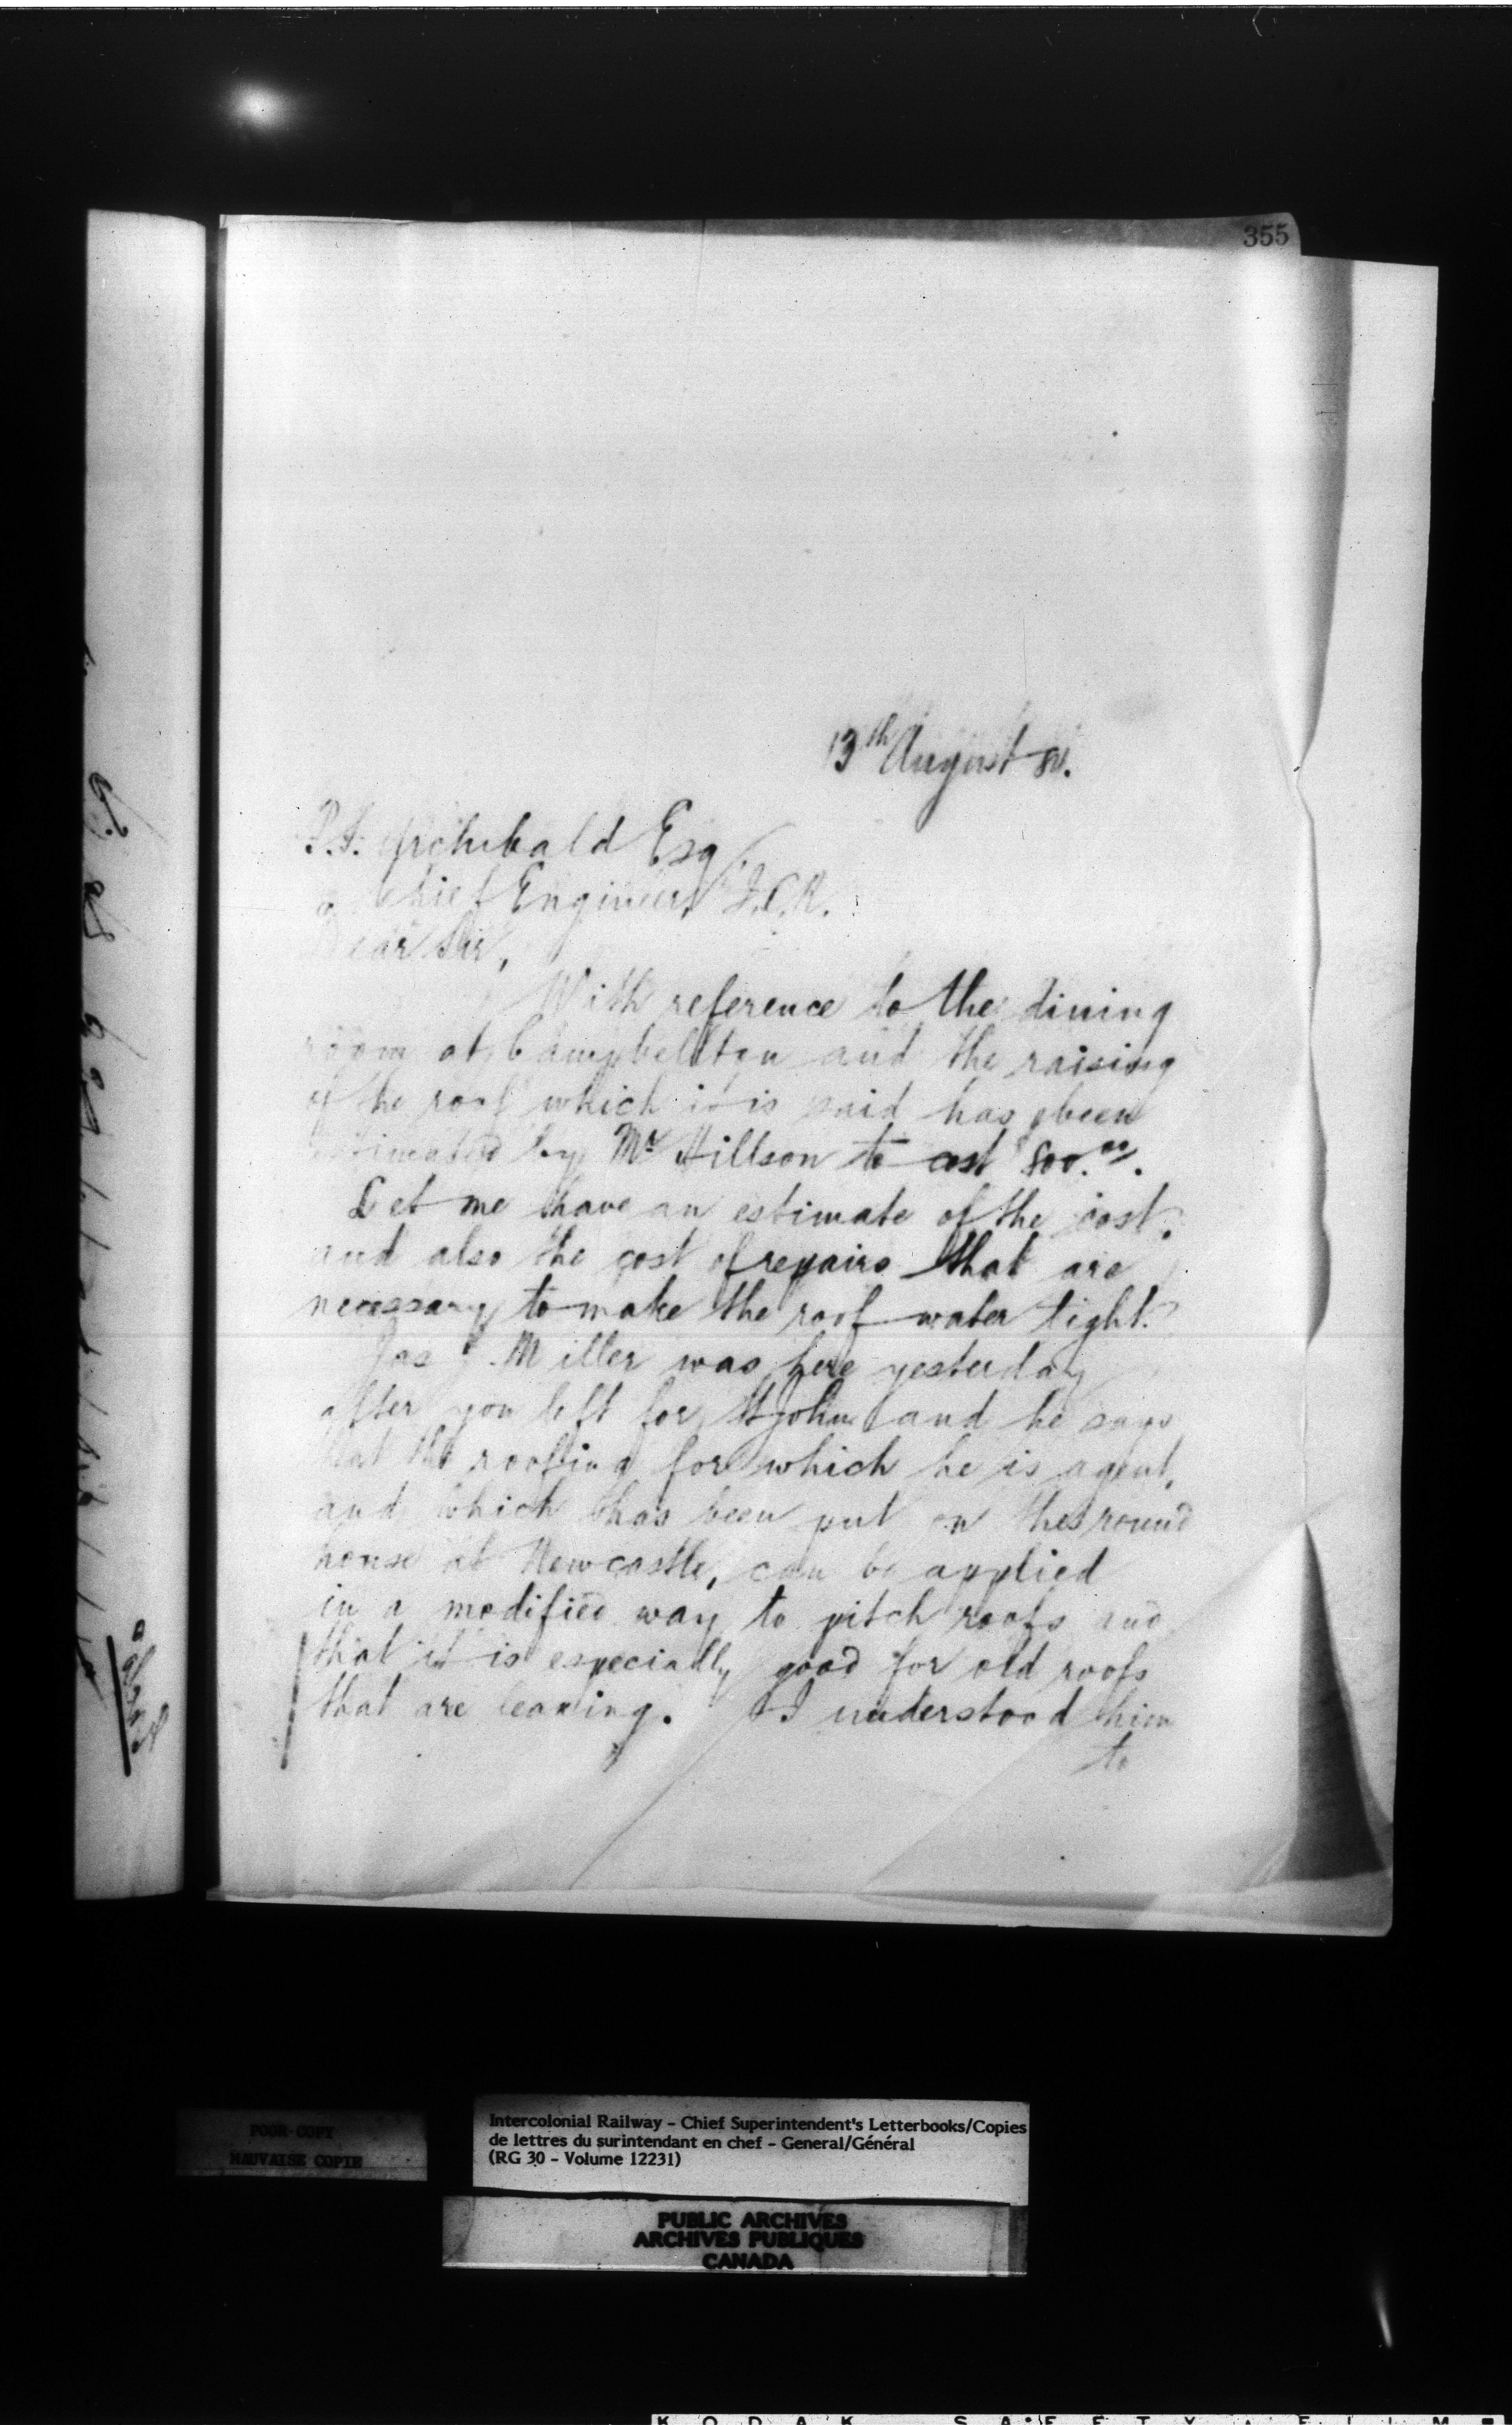 355
13th August 81.
P.S. Archibald Esq.
Chief Engineer I.C.R.
Dear Sir,
With reference to the dining
room at Campbellton and the raising
of the roof which it is said has been
estimated by Mr Hillson to cost 800.00.
Let me have an estimate of the cost,
and also the cost of repairs that are
necessary to make the roof water tight.
Jas J. Miller was here yesterday
after you left for St John and he says
that the roofing for which he is agent,
and which has been put on the round
house at Newcastle, can be applied
in a modified way to pitch roofs and
that it is especially good for old roofs
that are leaking. I understood him
to
POOR COPY
MAUVAISE COPIE
Intercolonial Railway - Chief Superintendent's Letterbooks/Copies
de lettres du surintendant en chef - General/Général
(RG 30 - Volume 12231)
PUBLIC ARCHIVES
ARCHIVES PUBLIQUES
CANADA
KODAK SAFETY FILM